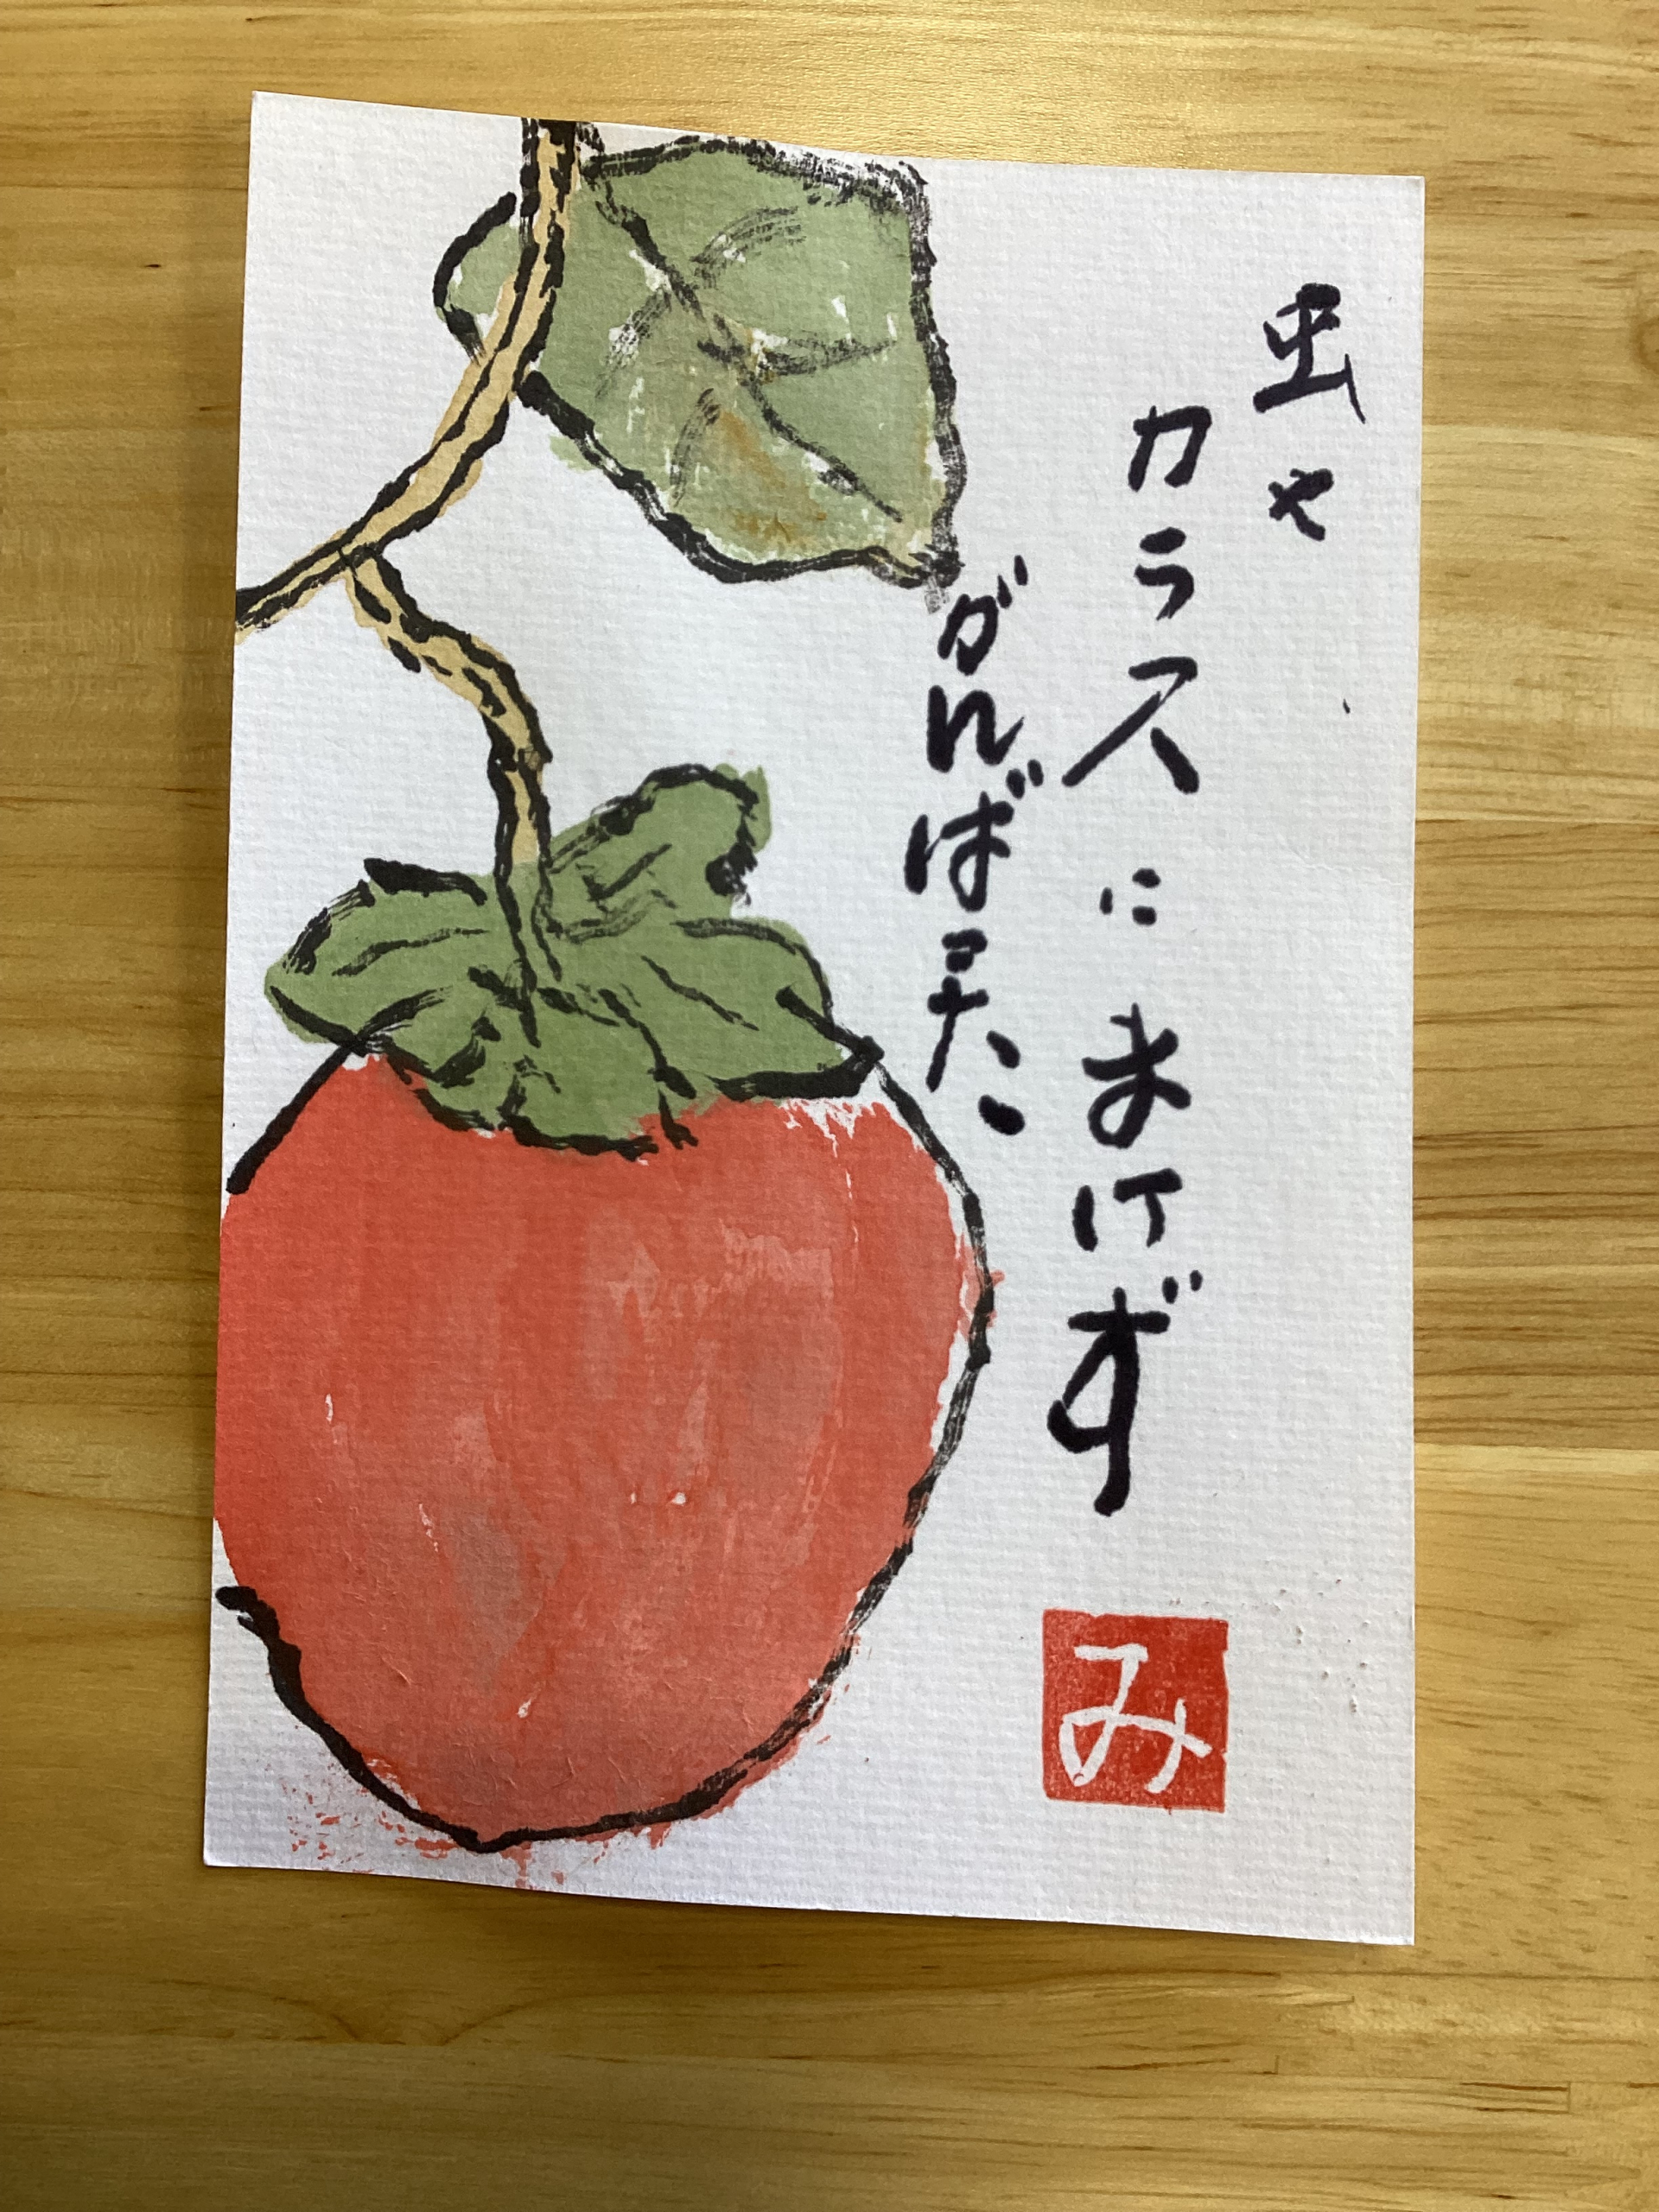 虫や
カラスにまけず
がんばった
み